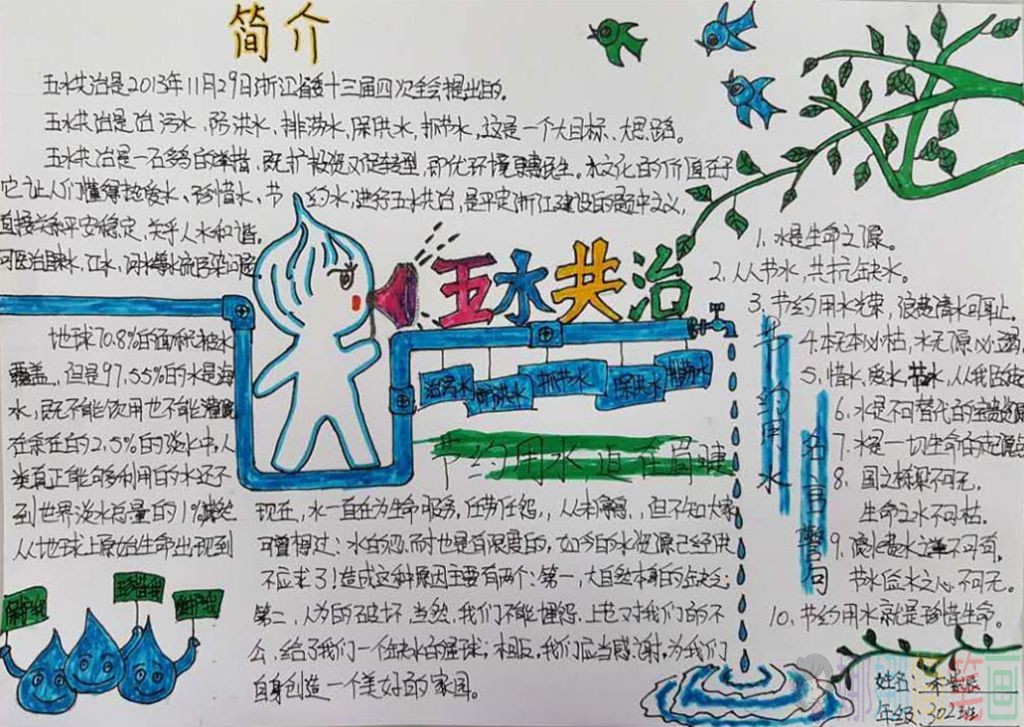 简介
五水共治是2013年11月29日浙江省委十三届四次全会提出的。
五水共治是治污水、防洪水、排涝水、保供水、抓节水,这是一个大目标、大思路。
五水共治是一石多鸟的举措,既扩投资又促转型,既优环境更惠民生。水文化的价值在于
它让人们懂得热爱水、珍惜水、节约水,进行五水共治,是平安浙江建设的题中之义,
直接关系平安稳定,关乎人水和谐。
五水共治
地球70.8%的面积被水
覆盖,但是97.55%的水是海
水,既不能饮用也不能灌溉
在余在的2.5%的淡水中,人
类真正能够利用的水还不
到世界淡水总量的1%
从地球上原始生命出现到
治污水
防洪水
抓节水
保供水
排涝水
节约用水
现在,水一直在为生命服务,任劳任怨,从未,但不知大家
可曾想过:水的而时也是有限度的,如今的水资源已经供
不应求了!造成这种原因主要有两个:第一,大自然本身的缺乏;
第二,人为的破坏,当然,我们不能埋怨,上苍对我们的不
公,给了我们一个缺水的星球;相反,我们应当感谢,为我们
自身创造一个美好的家园。
节约用水
名言警句
1. 水是生命之源。
2. 人人节水,共抗缺水。
3. 节约用水光荣,浪费清水可耻。
4. 木无本必枯,水无源必
5. 惜水,爱水,节水,从我
6. 水是不可替代的宝贵资源
7. 水是一切生命的
8. 国之栋梁不可无。
生命之水不可枯。
9. 费水之不可有。
节水之心不可无。
10. 节约用水就是珍惜生命。
保护我
珍惜我
姓名:
年级:202班